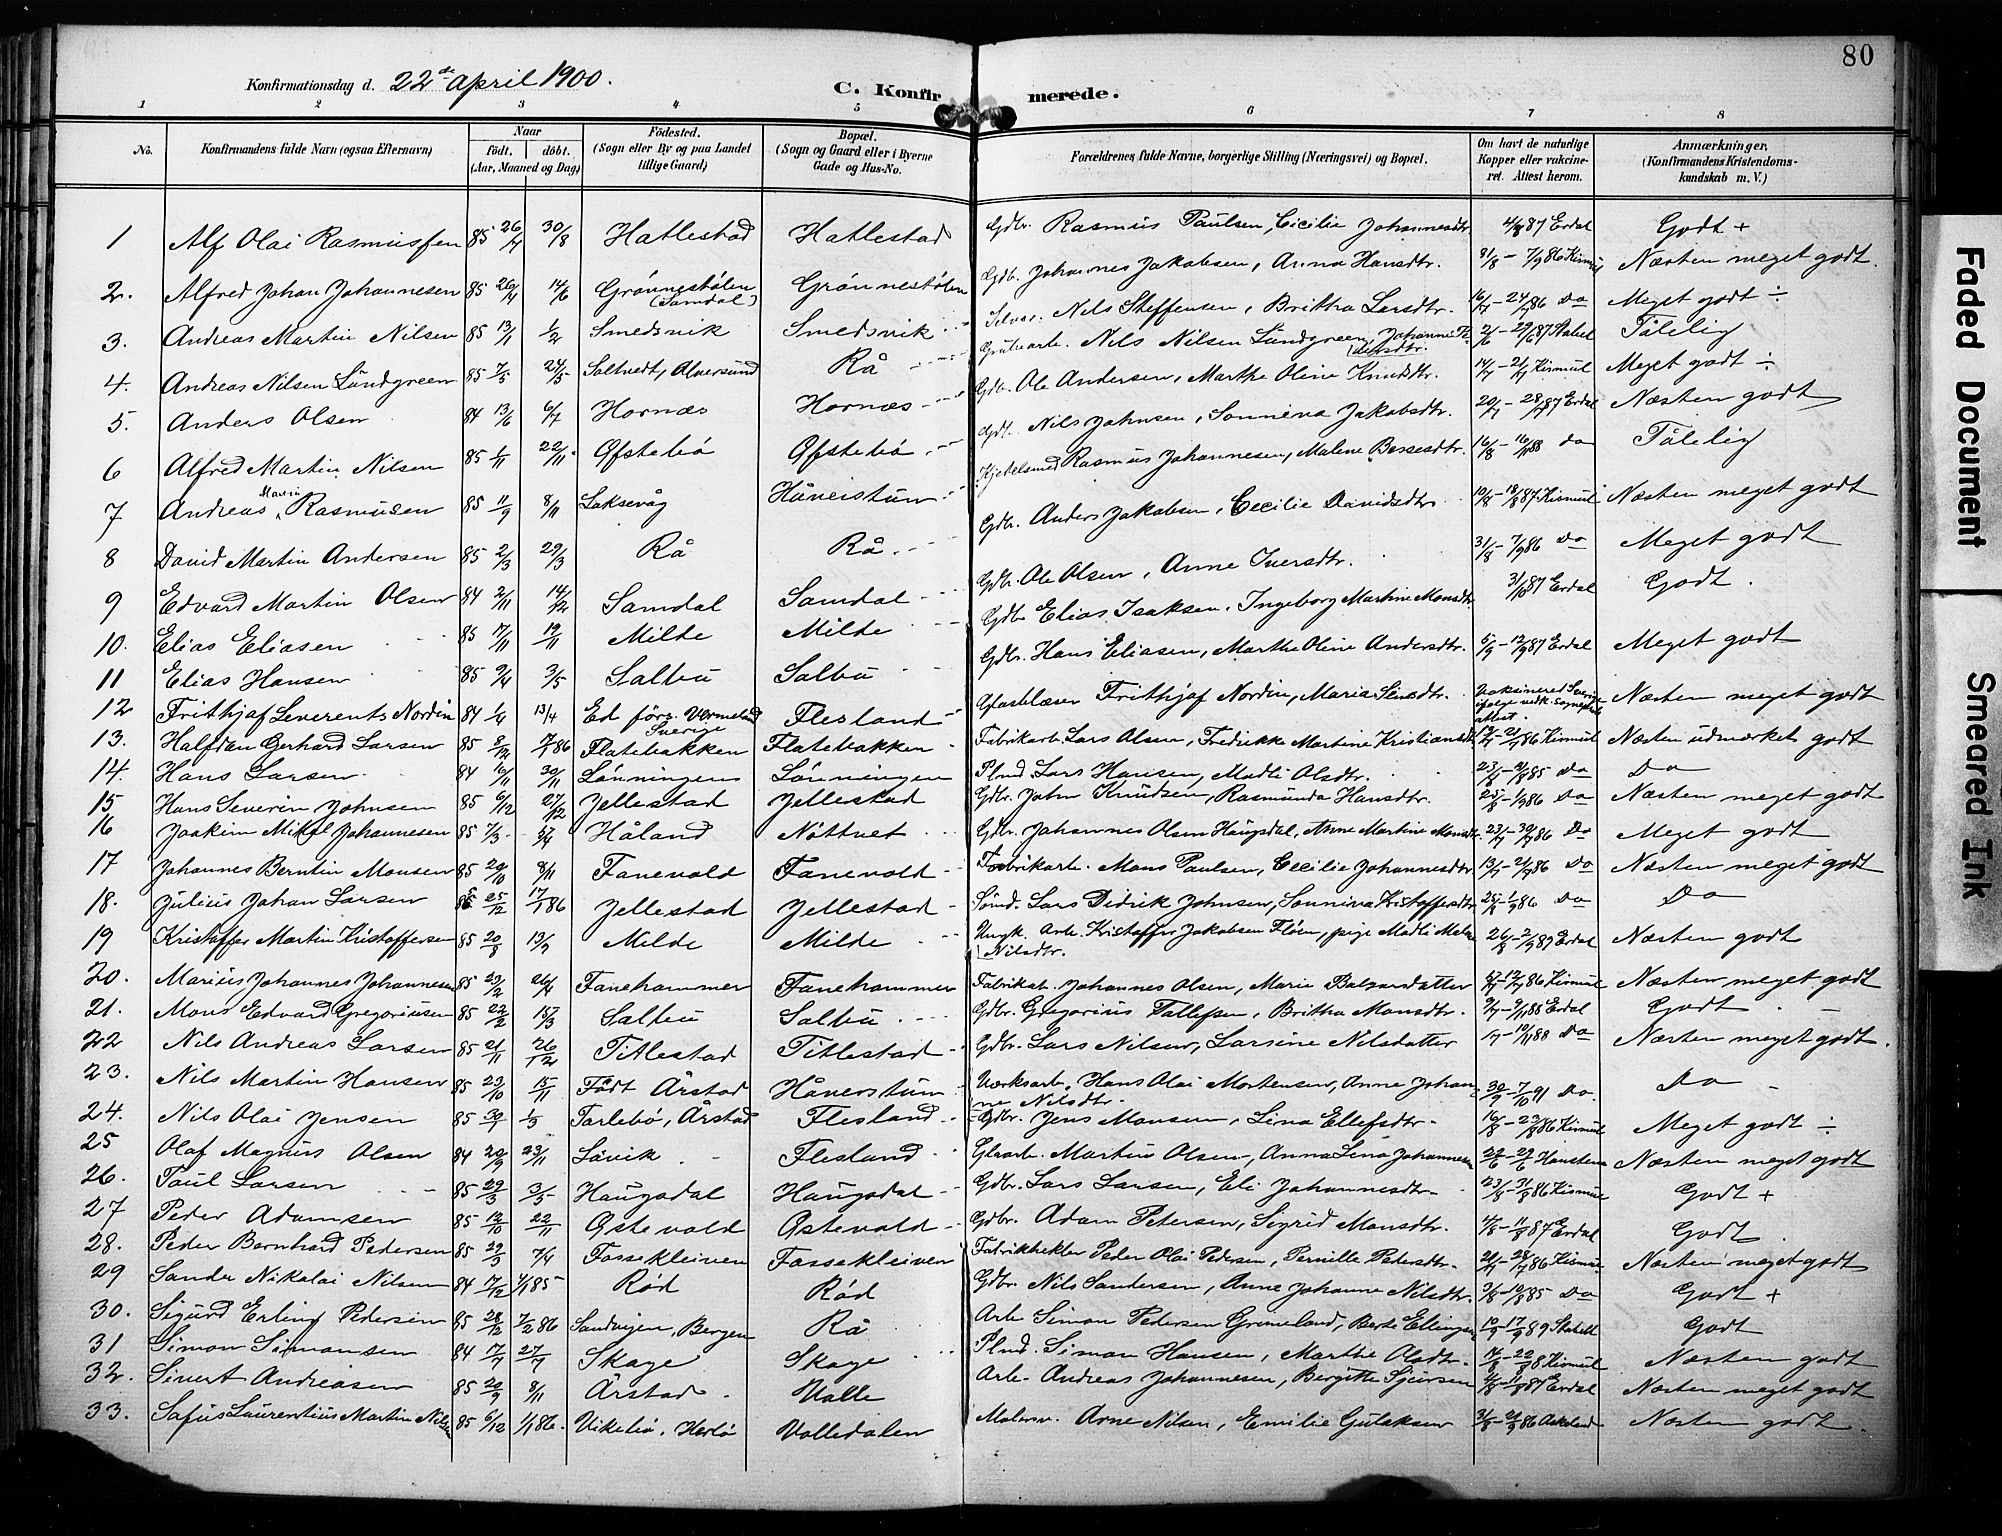 80
Konfirmationsdag d. 22de April 1900.
C. Konfirmerede.
1 2 3 4 5 6 7 8
No. Konfirmandens fulde Navn (ogsaa Efternavn) Naar födt. döbt. (Aar, Maaned og Dag) Födested. (Sogn eller By og paa Landet tillige Gaard) Bopæl. (Sogn og Gaard eller i Byerne Gade og Hus-No. Forældrenes fulde Navne, borgerlige Stilling (Næringsvei) og Bopæl. Om havt de naturlige Kopper eller vakcineret. Attest herom. Anmærkninger. (Konfirmandens Kristendomskundskab m. V.)
1 Alf Olai Rasmussen 85 26/7 30/8 Hatlestad Hatlestad Gdbr. Rasmus Paulsen, Cicilie Johannesdtr 4/8 87 Erdal Godt +
2. Alfred Johan Johannesen 85 26/4 14/6 Grønnestølen (Samdal) Grønnestølen Gdb. Johannes Jakobsen, Anna Hansdtr. 31/8 - 7/9 86 Kismul Næsten meget godt.
3. Andreas Martin Nilsen 85 13/1 1/2 Smedsvik Smedsvik Selvei. Nils Steffensen, Britha Larsdtr. 16/7 - 24/7 86 Do Meget godt ÷
4. Andreas Nilsen Lundgreen 85 7/5 24/5 Saltvedt, Alversund Rå Grubearb. Nils Nilsen Lundgreen, Johanne Pedersdtr. 21/6 - 29/6 87 Stabel Tålelig
5. Anders Olsen 84 13/6 6/7 Hornæs Hornæs Gdb. Ole Andersen, Marthe Oline Knudsdtr. 14/7 - 21/7 Kismul Meget godt ÷
6 Alfred Martin Nilsen 85 1/11 22/11 Øfstebø Øfstebø Gdb. Nils Johnsen, Sonneva Jakobsdtr. 20/7 - 28/7 87 Erdal Næsten godt
7 Andreas Martin Rasmusen 85 11/9 8/11 Laksevåg Håverstun Kjedelsmed Rasmus Johannesen, Malene Bossesdtr. 16/8 - 16/11 88 Do Tålelig
8 David Martin Andersen 85 2/3 29/3 Rå Rå Gdb. Anders Jakobsen, Cecilie Davidsdtr 10/8 - 18/8 87 Kismul Næsten meget godt
9 Edvard Martin Olsen 84 2/11 14/12 Samdal Samdal Gdb. Ole Olsen, Anne Iversdtr. 31/8 - 7/9 86 Do Meget godt
10. Elias Eliasen 85 17/11 19/11 Milde Milde Gdb Elias Isaksen, Ingeborg Martine Monsdtr 3/10 87 Erdal Godt.
11 Elias Hansen 85 9/4 3/5 Salbu Salbu Gdb. Hans Eliasen, Marthe Oline Andersdtr. 5/9 - 12/9 87 Erdal Meget godt
12 Frithjof Leverents Nordin 84 1/4 13/4 Ed förs. Vermeland Sverige Flesland Frithjof Nordin, Maria Næsten meget godt
13. Halfdan Gerhard Larsen 85 8/12 7/1 86 Flatebakken Flatebakken Fabrikarb. Lars Olsen, Fredrikke Martine Kristiansdtr 14/7 - 21/7 86 Kismul Næsten udmærket godt
14. Hans Larsen 84 10/11 30/11 Lønningens Lønningen Plmd. Lars Hansen, Madli Olsdtr. 23/8 - 2/8 85 Do Do
15 Hans Severin Johnsen 85 6/12 27/12 Jellestad Jellestad Gdbr. John Knudsen, Rasmunda Hansdtr. 25/8 - 1/9 86 Do Næsten meget godt
16 Joakim Mikal Johannesen 85 7/3 5/4 Håland Nøttvet Gdb. Johannes Olsen Haugsdal, Anne Martine Monsdtr. 23/7 - 30/7 86 Do Meget godt
17 Johannes Berntin Monsen 85 20/10 8/11 Fanevold Fanevold Fabrikarb. Mons Paulsen, Cecilie Johannesdtr 13/7 - 21/7 86 Do Næsten meget godt
18. Julius Johan Larsen 85 25/12 17/1 86 Jellestad Jellestad Sømd. Lars Didrik Johnsen, Sonniva Kristoffersdtr 25/8 - 1/9 86 Do Do
19 Kristoffer Martin Kristoffersen 85 20/8 13/9 Milde Milde Ungk. Arb. Kristoffer Jakobsen Fløen, pige Madli Nilsdtr. 26/8 - 2/9 89 Erdal Næsten godt
20. Marius Johannes Johannesen 85 23/2 26/4 Fanehammer Fanehammer Fabrikarb. Johannes Olsen, Marie Balsarsdatter 5/7 - 12/7 86 Kismul Næsten meget godt
21. Mons Edvard Gregoriusen 85 22/2 15/3 Salbu Salbu Gdbr. Gregorius Tallefsen, Britha Monsdtr. 9/11 88 Erdal Godt
22 Nils Andreas Larsen 85 21/11 26/12 Titlestad Titlestad Gdbr. Lars Nilsen, Larsine Nilsdatter 10/11 88 Do Næsten meget godt.
23. Nils Martin Hansen 85 23/10 15/11 Födt Årstad Håverstun Verksarb. Hans Olai Mortensen, Anne Johanne Nilsdtr. 30/9 - 7/10 91 Do. Do -
24. Nils Olai Jensen 85 30/1 1/3 Tarlebø, Årstad Flesland Gdbr. Jens Monsen, Lina Ellefsdtr. 16/8 - 23/8 86 Kismul Meget godt ÷
25 Olaf Magnus Olsen 84 20/9 23/11 Lövik Flesland Martin Olsen, Anna Lina Johannesen 22/6 - 29/6 Hansten Næsten meget godt
26. Paul Larsen 85 29/3 3/5 Haugsdal Haugsdal Gdb. Lars Larsen, Eli Johannesdtr. 23/8 - 31/8 86 Kismul Godt +
27 Peder Adamsen 85 12/10 22/11 Østevold Østevold Gdbr. Adam Petersen, Sigrid Monsdtr. 4/8 - 11/8 87 Erdal Godt
28. Peder Bernhard Pedersen 85 29/3 7/4 Fossekleiven Fossekleiven Peder Olai Pedersen, Pernille Pedersdtr. 20/7 - 28/7 86 Kismul Næsten meget godt
29 Sander Nikolai Nilsen 84 17/12 1/1 85 Rød Rød Gdbr. Nils Sandersen, Anne Johanne Nilsdtr. 3/8 - 10/8 85 Do Godt +
30. Sigurd Erling Pedersen 85 28/12 7/2 86 Sandvigen, Bergen Rå Arb Simon Pedersen Grøneland, Berte Ellingsen 10/9 - 17/9 89 Godt
31 Simon Simonsen 84 17/7 27/7 Skage Skage Plmd. Simon Hansen, Marthe Olsdtr. 15/8 - 22/8 Kismul Næsten godt
32. Sivert Andreasen 85 20/9 8/11 Årstad Valle Arb. Andreas Johannesen, Bergitte Sjursen 4/8 - 11/8 87 Erdal Næsten meget godt
33. Laurentius Martin Nilsen 85 6/12 1/1 86 Vikebø, Herlø Valledalen Malersv. Arne Nilsen, Emilie Gulaksen 3/8 - 21/9 86 Askeland Næsten godt.
Faded Document
Smeared Ink